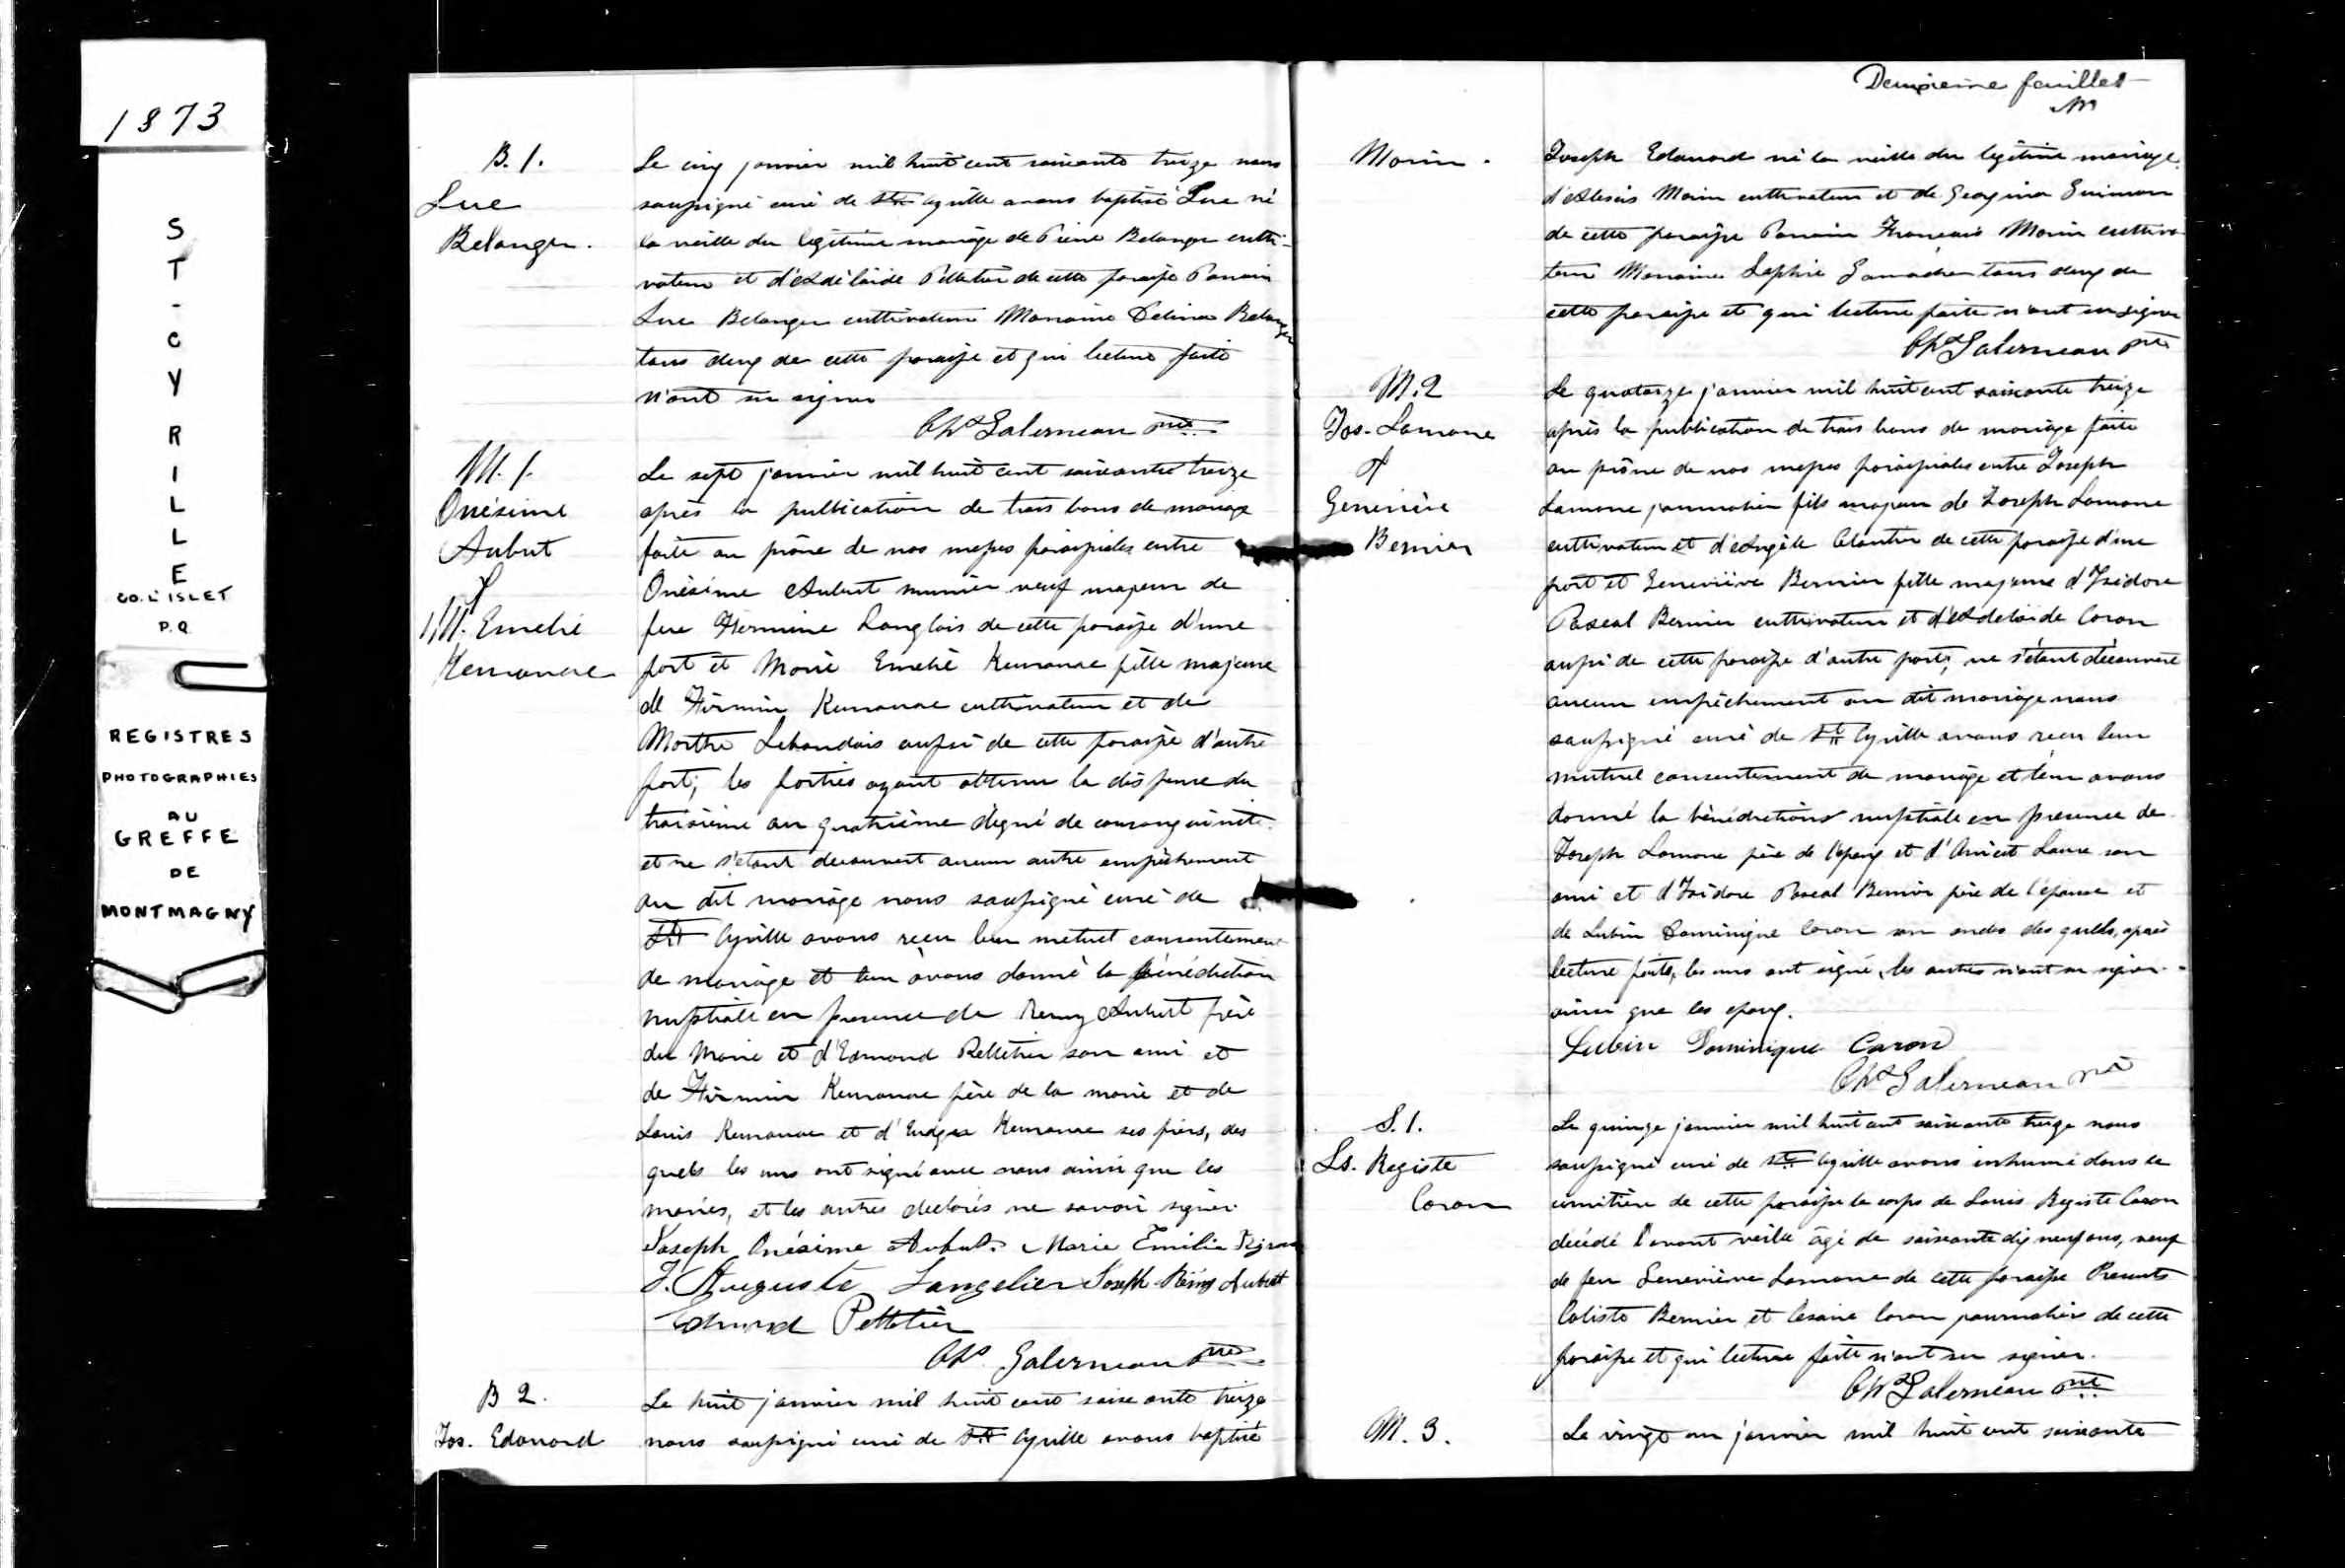 1873
ST-CYRILLE
CO. L'ISLET
P.Q.
REGISTRES
PHOTOGRAPHIES
AU
GREFFE
DE
MONTMAGNY
B. 1.
Luc
Belanger.
Le cinq janvier mil huit cent soixante treize nous
soussigné curé de St. Cyrille avons baptisé Luc né
la veille du légitime mariage de Pierre Belanger culti-
vateur et d'Adélaïde Pelletier de cette paroisse Parrain
Luc Belanger cultivateur Marraine Delina Belanger
tous deux de cette paroisse et qui lecture faite
n'ont su signer
Chs Galerneau ptre
M. 1.
Onésime
Aubut
&
M. Emelie
Kerouac
Le sept janvier mil huit cent soixante treize
après la publication de trois bans de mariage
faite au prône de nos messes paroissiales entre
Onésime Aubut meunier veuf majeur de
feue Hermine Langlois de cette paroisse d'une
part et Marie Emelie Kerouac fille majeure
de Firmin Kerouac cultivateur et de
Marthe Lebourdais aussi de cette paroisse d'autre
part; les parties ayant obtenu la dispense du
troisième au quatrième dégré de consanguinité
et ne s'étant découvert aucun autre empêchement
au dit mariage nous soussigné curé de
St. Cyrille avons reçu leur mutuel consentement
de mariage et leur avons donné la bénédiction
nuptiale en presence de Remy Aubut frère
du Marié et d'Edmond Pelletier son ami et
de Firmin Kerouac père de la mariée et de
Louis Kerouac et d' Kerouac ses frères, des
quels les uns ont signé avec nous ainsi que les
mariés, et les autres declarés ne savoir signer.
Joseph Onésime Aubut. Marie Emilie
J. Auguste Langelier Joseph Rémy Aubut
Edmond Pelletier
Chs Galerneau ptre
B 2.
Jos. Edouard
Le huit janvier mil huit cent soixante treize
nous soussigné curé de St. Cyrille avons baptisé
Deuxieme feuillet
Morin.
Joseph Edouard né la veille du légitime mariage
d'Alexis Morin cultivateur et de Georgina Guimon
de cette paroisse Parrain Francois Morin cultiva
teur Marraine Sophie Gamache tous deux de
cette paroisse et qui lecture faite n'ont su signer
Chs Galerneau ptre
M. 2
Jos. Lamarre
&
Geneviève
Bernier
Le quatorze janvier mil huit cent soixante treize
après la publication de trois bans de mariage faite
au prône de nos messes paroissiales entre Joseph
Lamarre journalier fils majeur de Joseph Lamarre
cultivateur et d'Angèle Cloutier de cette paroisse d'une
part et Geneviève Bernier fille majeure d'Isidore
Pascal Bernier cultivateur et d'Adelaïde Caron
aussi de cette paroisse d'autre part; ne s'étant découvert
aucun empêchement au dit mariage nous
soussigné curé de St. Cyrille avons reçu leur
mutuel consentement de mariage et leur avons
donné la bénédiction nuptiale en presence de
Joseph Lamarre père de l'époux et d' son
ami et d'Isidore Pascal Bernier père de l'épouse et
de Lubin Dominique Caron son oncle des quels, après
lecture faite, les uns ont signé, les autres n'ont su signer
ainsi que les epoux.
Lubin Dominique Caron
Chs Galerneau ptre
S. 1.
Ls. Registe
Caron
Le quinze janvier mil huit cent soixante treize nous
soussigné curé de St. Cyrille avons inhumé dans le
cimitière de cette paroisse le corps de Louis Registe Caron
décédé l'avant veille âgé de soixante dix neuf ans, veuf
de feu Geneviève Lamarre de cette paroisse Presents
Caliste Bernier et Césaire Caron journaliers de cette
paroisse et qui lecture faite n'ont su signer.
Chs Galerneau ptre
M. 3.
Le vingt un janvier mil huit cent soixante